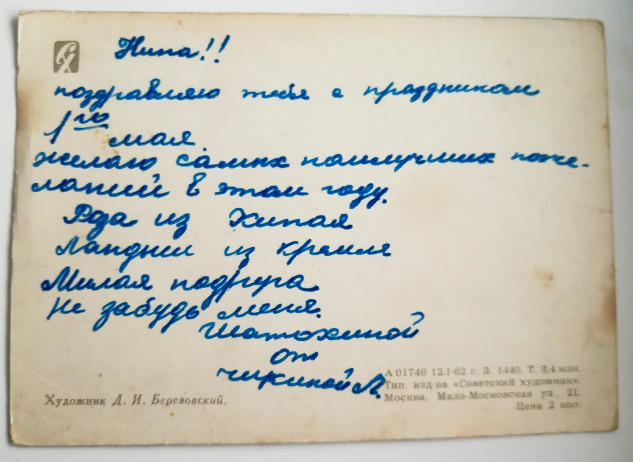 Нина!!
поздравляю тебя с праздником
1го мая.
желаю самых наилучших поже-
ланий в этом году.
Роза из Китая
Ландыш из кремля
Милая подруга
не забудь меня.
Шатохиной
от
Чикиной Л.
Художник Д. И. Березовский.
А 01746 12.I-62 г. З. 1440. Т. 3,4 млн.
Тип. изд-ва «Советский художник».
Москва, Мало-Московская ул., 21.
Цена 2 коп.